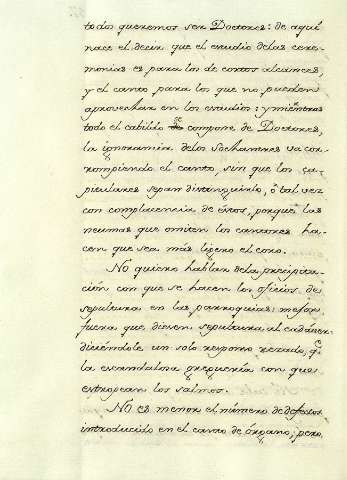 todos queremos ser Doctores: de aquí
nace el decir que el estudio delas cere-
monias es para los de cortos alcances,
y el canto para los que no pueden
aprovechar en los estudios: y mientras
todo el cabildo se compone de Doctores,
la ignorancia delos Sochantres va cor-
rompiendo el canto, sin que los ca-
pitulares sepan distinguirlo, ó tal vez
con complacencia de éstos, porque las
neumas que omiten los cantores ha-
cen que sea más ligero el coro.
No quiero hablar dela precipita-
ción con que se hacen los oficios de
sepultura en las parroquias: mejor
fuera que diesen sepultura al cadáver
diciéndole un solo responso rezado, q.e
la escandalosa greguería con que
estropean los salmos.
No es menor el número de defectos
introducido en el canto de órgano, pero